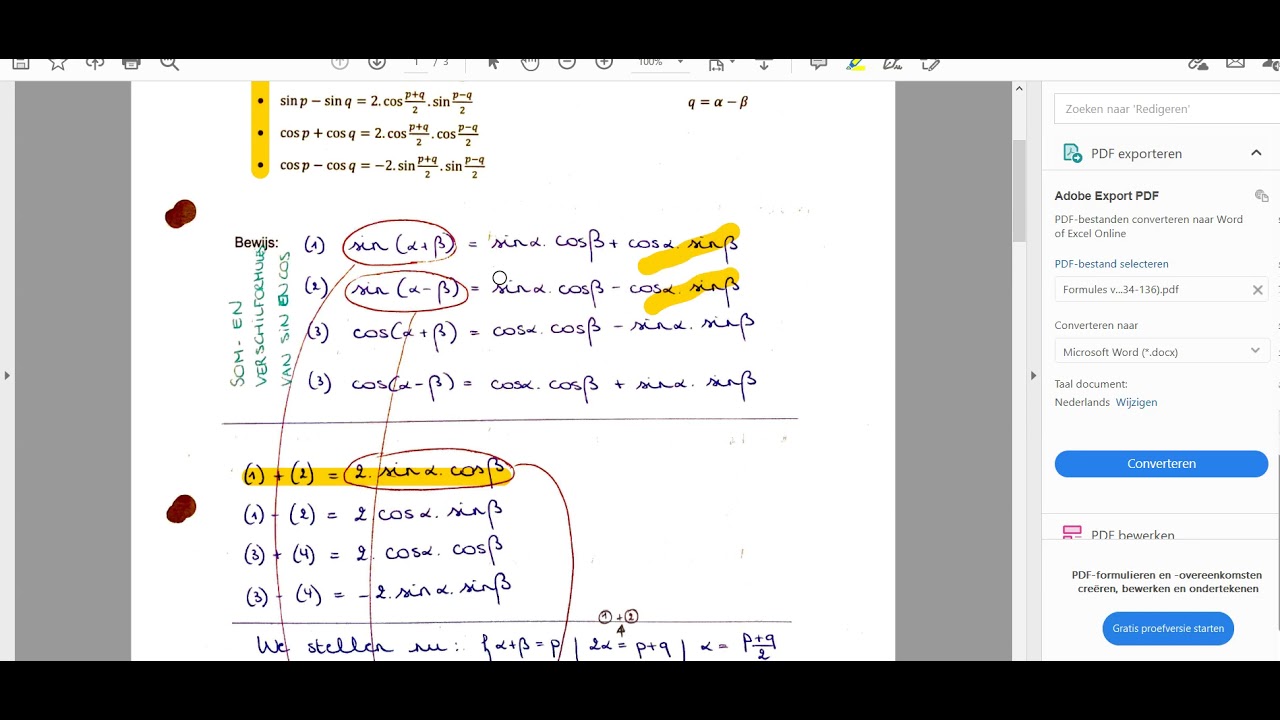 1 / 3
100%
sin p − sin q = 2. cos p+q/2 . sin p−q/2
q = α − β
cos p + cos q = 2. cos p+q/2 . cos p−q/2
cos p − cos q = −2. sin p+q/2 . sin p−q/2
Bewijs: (1) sin (α+β) = sinα. cosβ + cosα. sinβ
(2) sin (α−β) = sinα. cosβ − cosα. sinβ
(3) cos(α+β) = cosα. cosβ − sinα. sinβ
(3) cos(α−β) = cosα. cosβ + sinα. sinβ
SOM- EN
VERSCHILFORMULES
VAN SIN EN COS
(1) + (2) = 2. sinα. cosβ
(1) − (2) = 2 cosα. sinβ
(3) + (4) = 2. cosα. cosβ
(3) − (4) = −2. sinα. sinβ
① + ②
We stellen nu: { α+β = p | 2α = p+q | α = p+q/2
Zoeken naar 'Redigeren'
PDF exporteren
Adobe Export PDF
PDF-bestanden converteren naar Word
of Excel Online
PDF-bestand selecteren
Formules v...34-136).pdf
Converteren naar
Microsoft Word (*.docx)
Taal document:
Nederlands Wijzigen
Converteren
PDF bewerken
PDF-formulieren en -overeenkomsten
creëren, bewerken en ondertekenen
Gratis proefversie starten